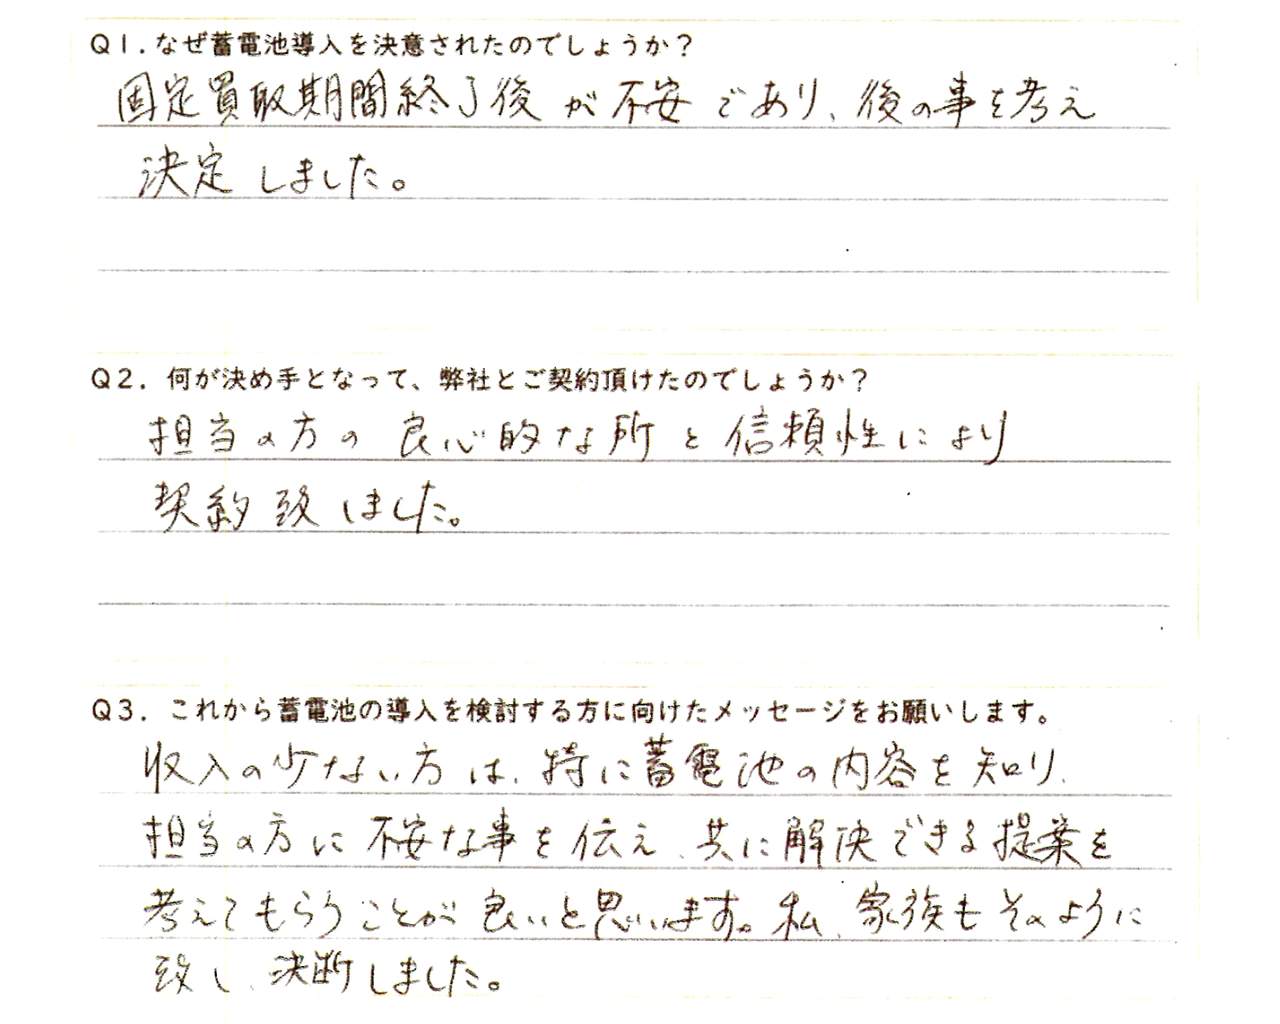 Q1.なぜ蓄電池導入を決意されたのでしょうか？
固定買取期間終了後が不安であり、後の事を考え
決定しました。
Q2．何が決め手となって、弊社とご契約頂けたのでしょうか？
担当の方の良心的な所と信頼性により
契約致しました。
Q3．これから蓄電池の導入を検討する方に向けたメッセージをお願いします。
収入の少ない方は、特に蓄電池の内容を知り、
担当の方に不安な事を伝え、共に解決できる提案を
考えてもらうことが良いと思います。私、家族もそのように
致し、決断しました。